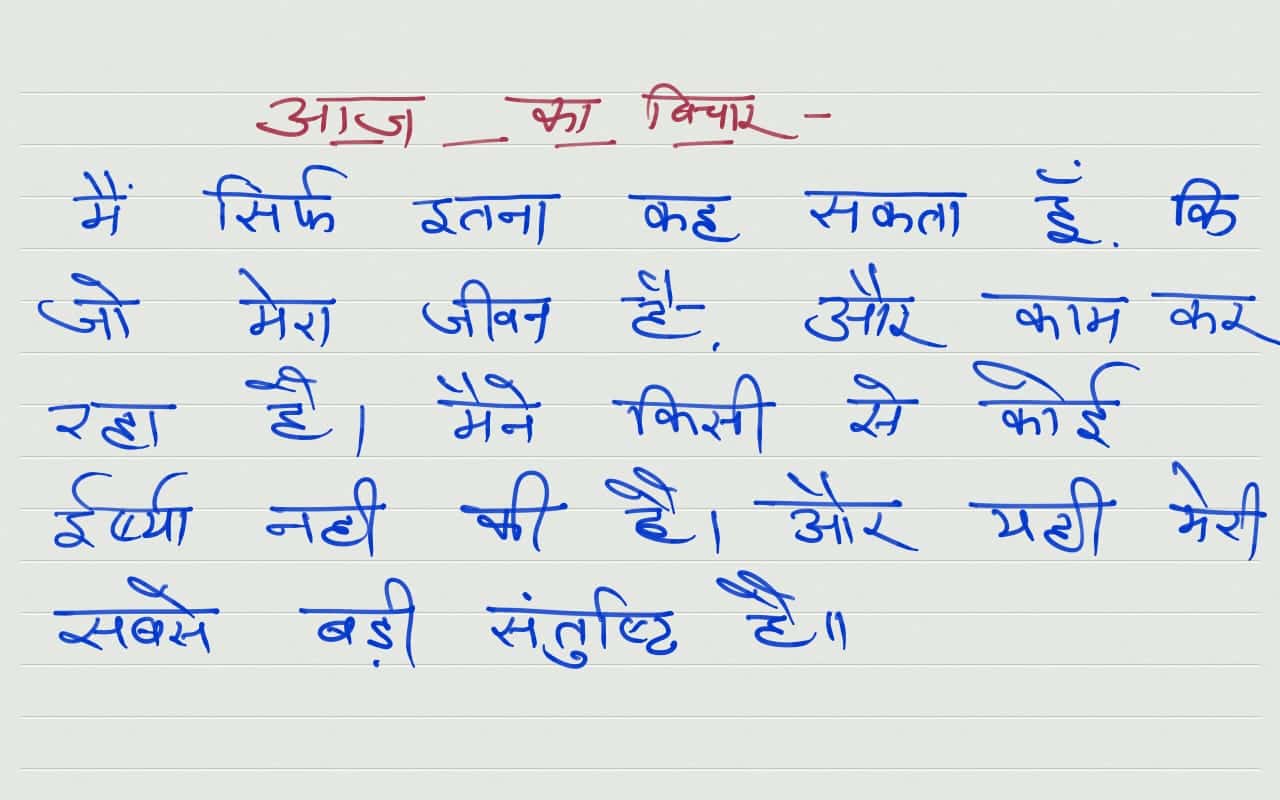 आज का विचार -
मैं सिर्फ इतना कह सकता हूँ. कि
जो मेरा जीवन है. और काम कर
रहा है। मैने किसी से कोई
ईर्ष्या नही की है। और यही मेरी
सबसे बड़ी संतुष्टि है॥